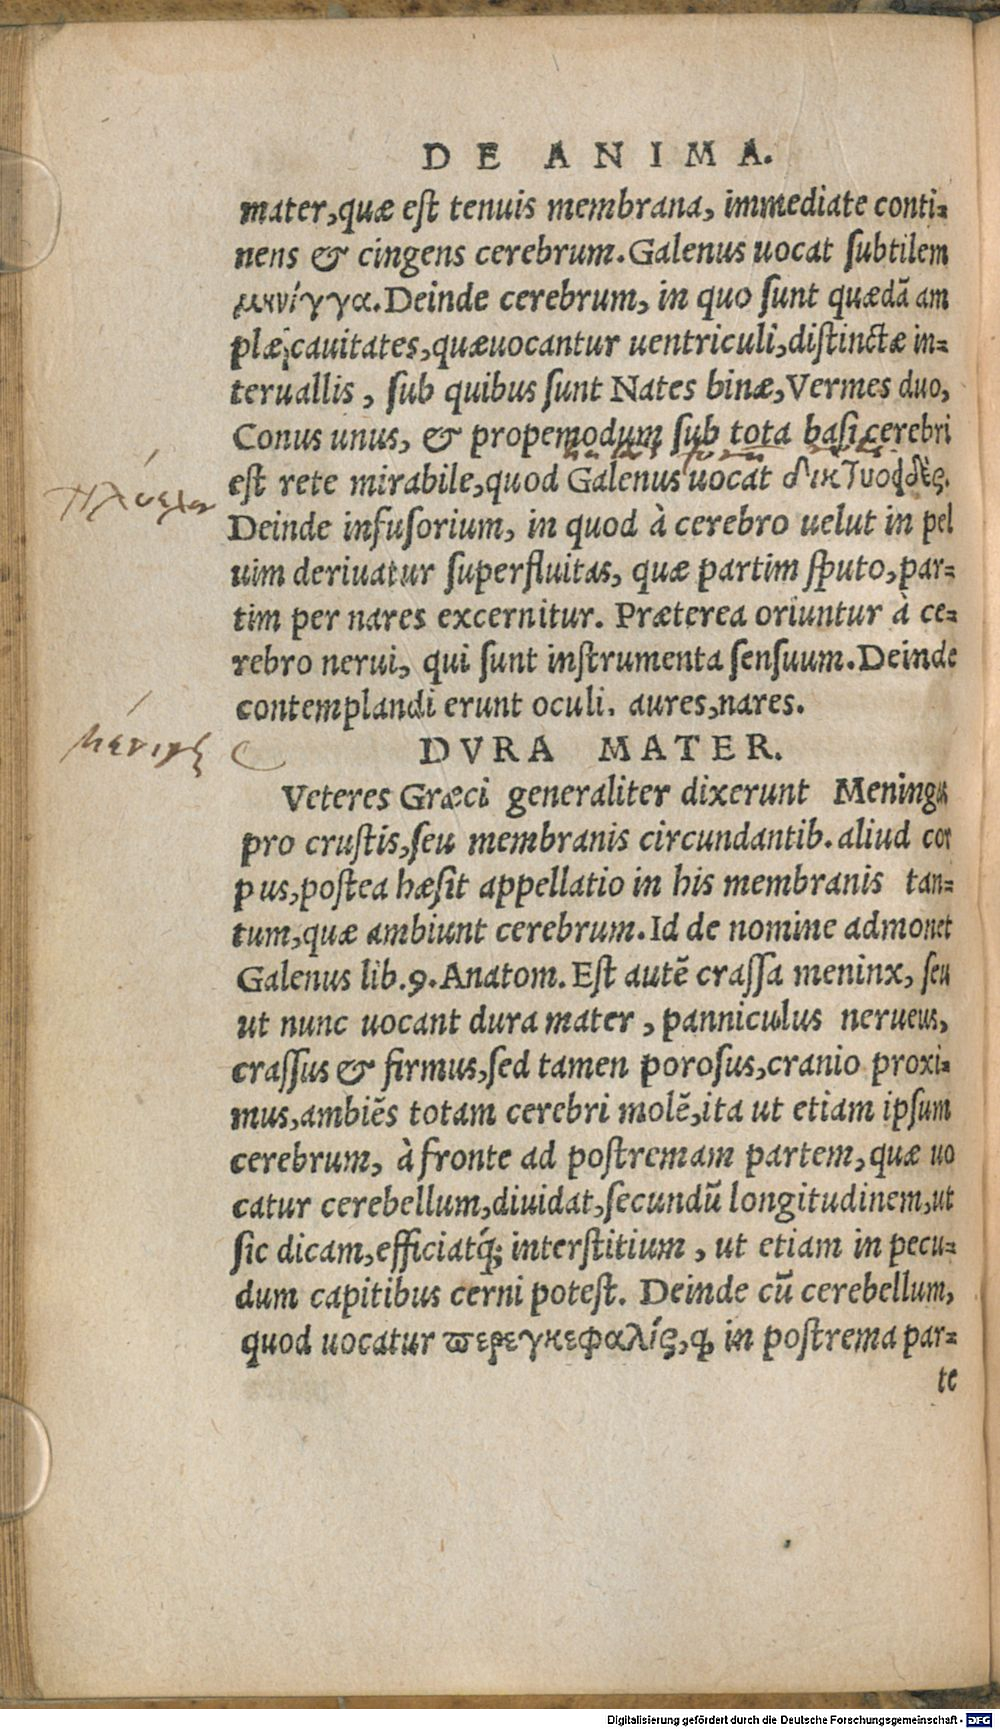 DE ANIMA.
mater,quæ eſt tenuis membrana, immediate conti=
nens & cingens cerebrum.Galenus uocat ſubtilem
μηνίγγα.Deinde cerebrum, in quo ſunt quædã am
plæ cauitates,quæuocantur uentriculi,diſtinctæ in=
teruallis , ſub quibus ſunt Nates binæ,Vermes duo,
Conus unus, & propemodum ſub tota baſi cerebri
eſt rete mirabile,quod Galenus uocat
Deinde infuſorium, in quod à cerebro uelut in pel
uim deriuatur ſuperfluitas, quæ partim ſputo,par=
tim per nares excernitur. Præterea oriuntur à ce=
rebro nerui, qui ſunt inſtrumenta ſenſuum.Deinde
contemplandi erunt oculi. aures,nares.
DVRA MATER.
Veteres Græci generaliter dixerunt Meningas
pro cruſtis,ſeu membranis circundantib. aliud cor
pus,poſtea hæſit appellatio in his membranis tan=
tum,quæ ambiunt cerebrum.Id de nomine admonet
Galenus lib.9.Anatom.Eſt autẽ craſſa meninx, ſeu
ut nunc uocant dura mater , panniculus nerueus,
craſſus & firmus,ſed tamen poroſus,cranio proxi=
mus,ambiẽs totam cerebri molẽ,ita ut etiam ipſum
cerebrum, à fronte ad poſtremam partem,quæ uo
catur cerebellum,diuidat,ſecundũ longitudinem,ut
ſic dicam,efficiatq́; interſtitium , ut etiam in pecu=
dum capitibus cerni poteſt. Deinde cũ cerebellum,
quod uocatur ϖερεγκεφαλίς,ꝙ in poſtrema par=
te
Digitalisierung gefördert durch die Deutsche Forschungsgemeinschaft - DFG